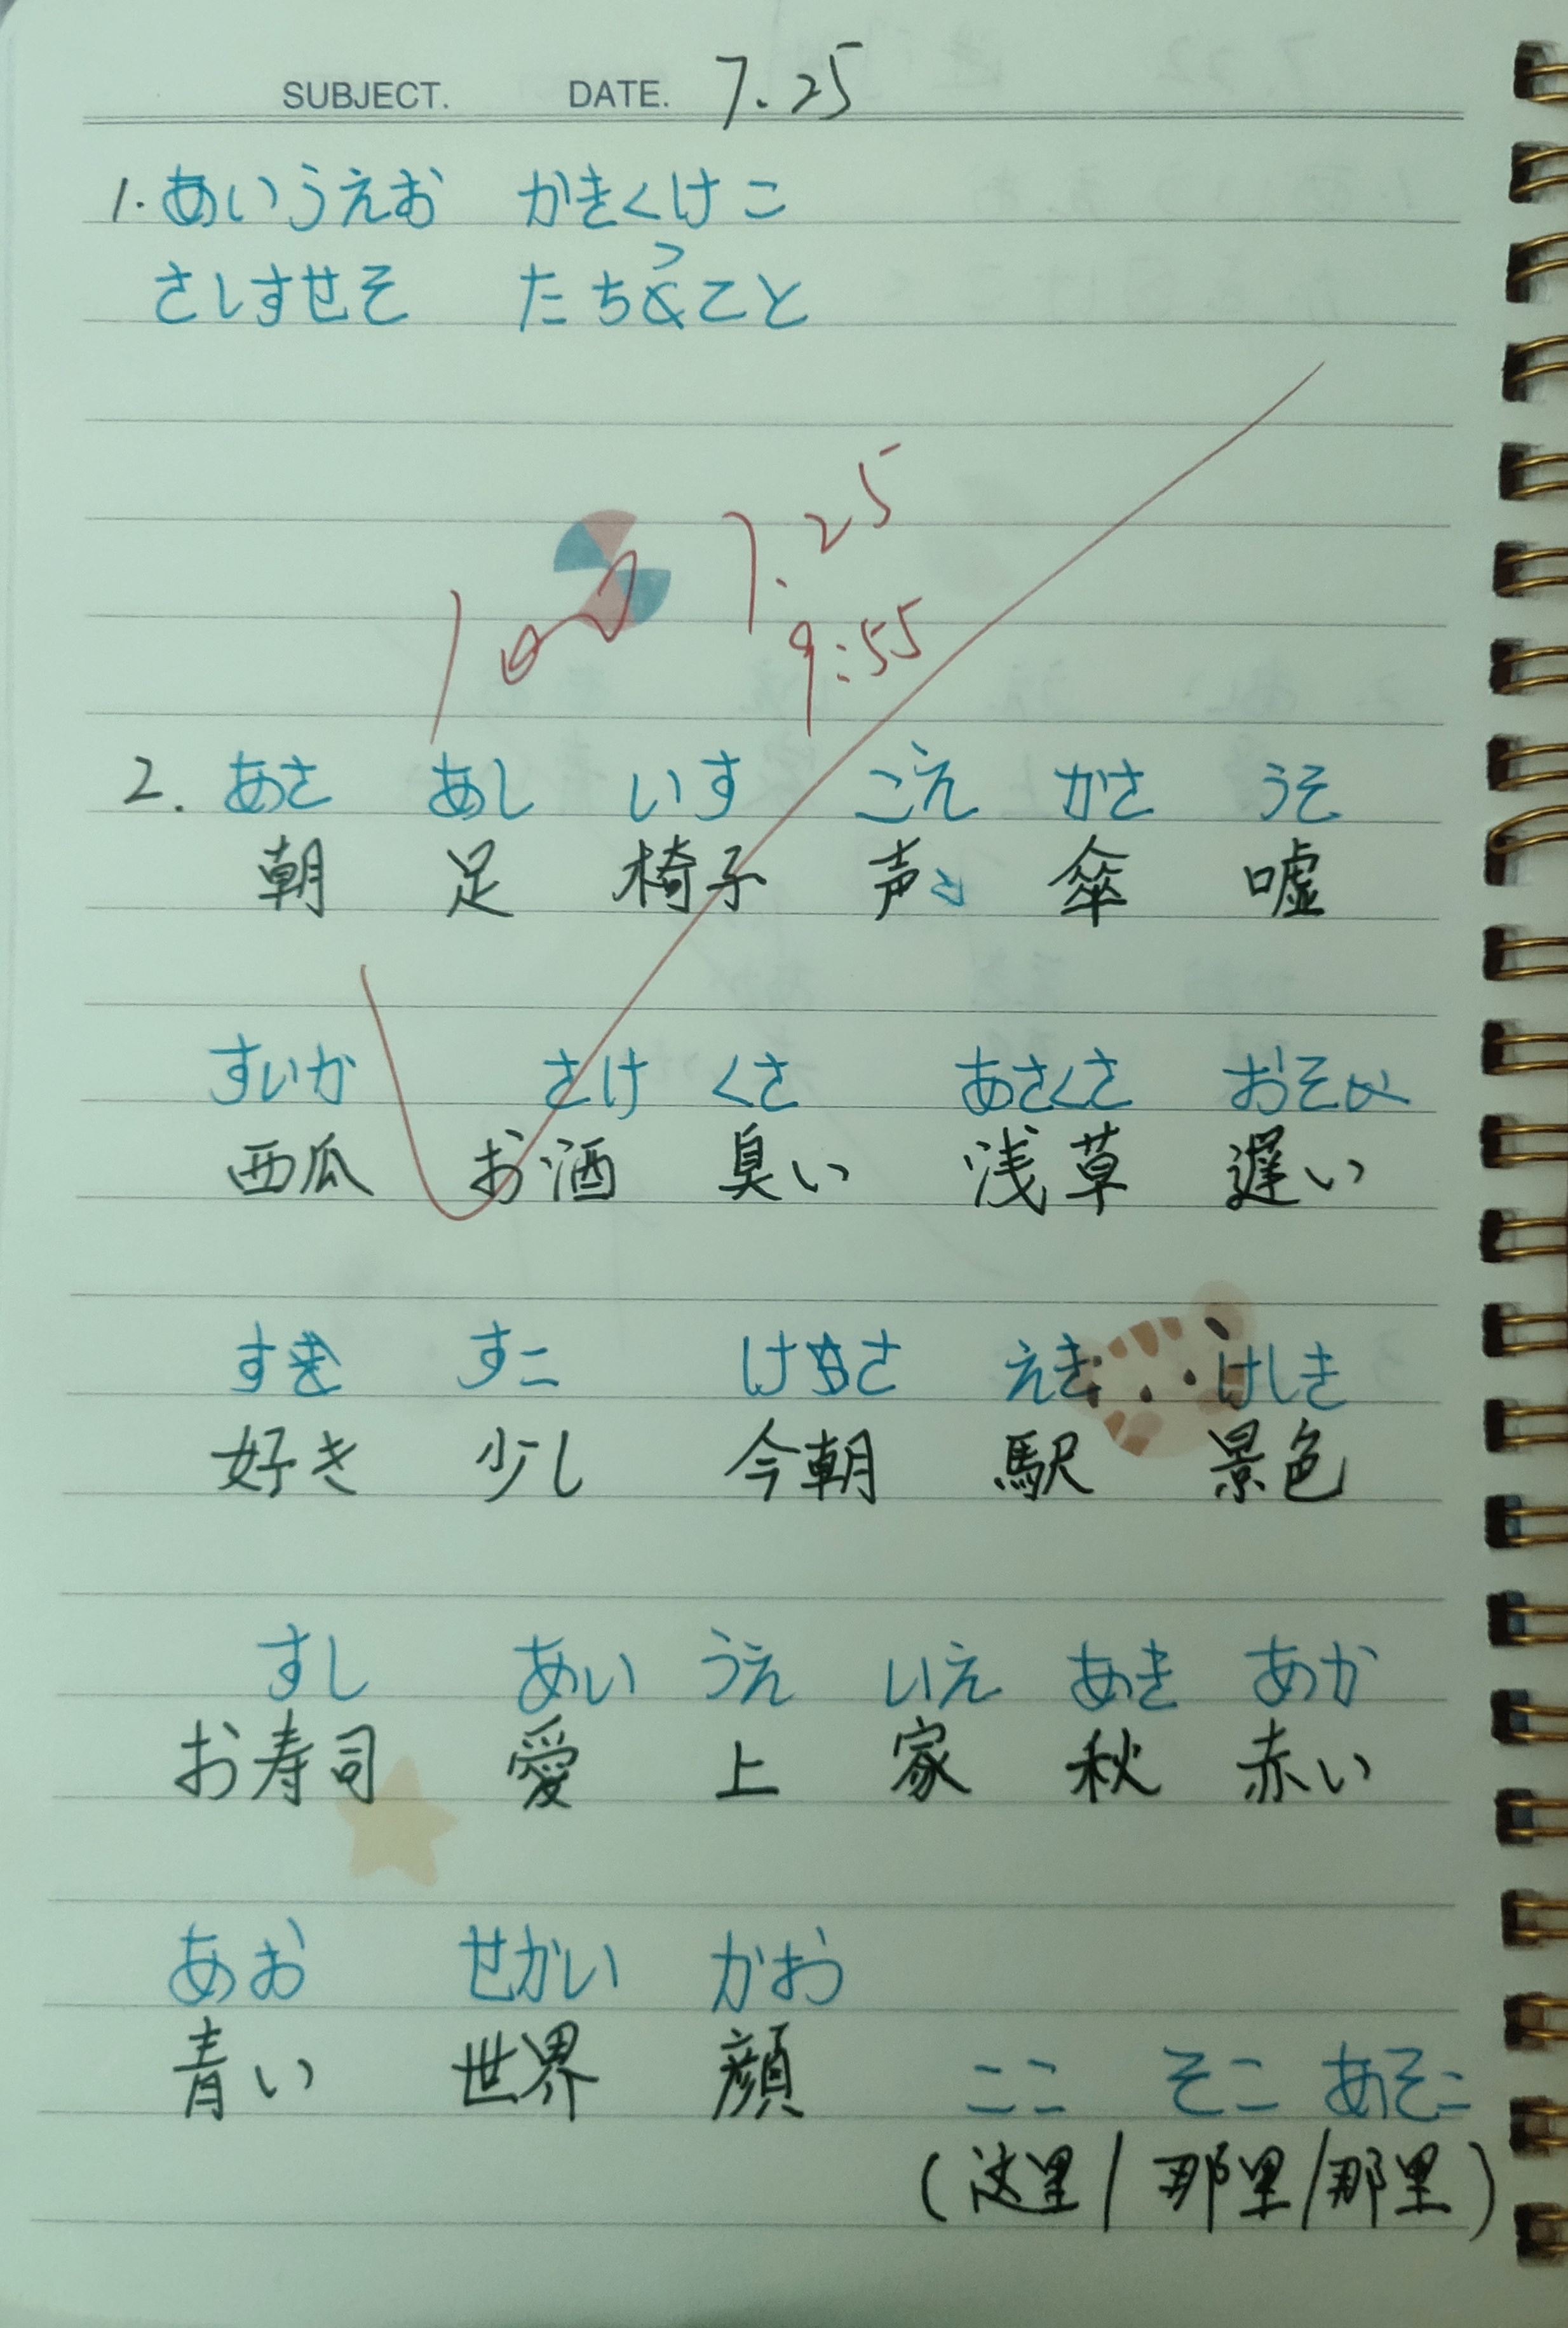 SUBJECT. DATE. 7.25
1. あいうえお かきくけこ
さしすせそ たちつてと
100 7.25
9:55
2. あさ あし いす こえ かさ うそ
朝 足 椅子 声 傘 嘘
すいか さけ くさ あさくさ おそ
西瓜 お酒 臭い 浅草 遅い
すき すこ けさ えき けしき
好き 少し 今朝 駅 景色
すし あい うえ いえ あき あか
お寿司 愛 上 家 秋 赤い
あお せかい かお
青い 世界 顔 ここ そこ あそこ
(这里/那里/那里)